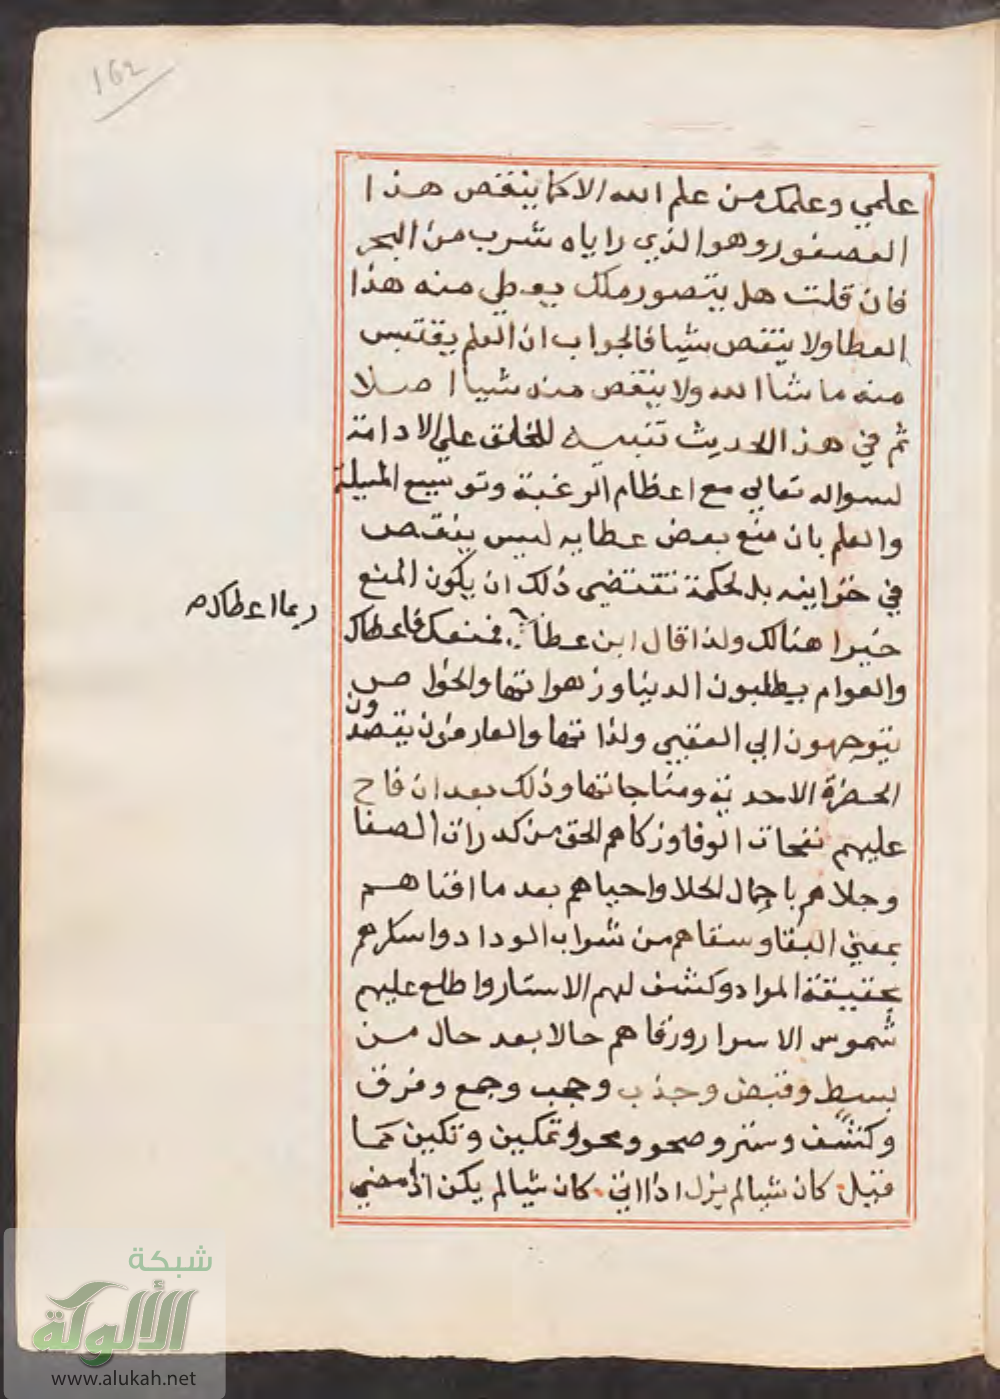 162
علمي وعلمك من علم الله الا كما ينقص هذا
العصفور وهو الذي راياه شرب من البحر
فان قلت هل يتصور ملك يعطي منه هذا
العطا ولا ينقص شيا فالجواب ان العلم يقتبس
منه ما شا الله ولا ينقص منه شيا اصلا
ثم في هذا الحديث تنبيه للخلق علي الادامة
لسواله تعالي مع اعظام الرغبة وتوسيع المسيلة
والعلم بان منع بعض عطايه ليس ينقص
في خزاينه بل لحكمة تقتضي ذلك ان يكون المنع
خيرا هنالك ولذا قال ابن عطا فمنعك فاعطاك
ربما اعطاك ص
والعوام يطلبون الدنيا وزهواتها والخواص
يتوجهون الي العقبي ولذاتها والعارفون يقصدون
الحضرة الاحدية ومناجاتها وذلك بعد ان فاح
عليهم نفحات الوفا وزكاهم الحق من كدرات الصفا
وجلاهم باجمال الحلا واحياهم بعد ما افناهم
بمعني البقا وسقاهم من شراب الوداد واسكرهم
بحقيقة المواد وكشف لهم الاستار واطلع عليهم
شموس الاسرار ورقاهم حالا بعد حال من
بسط وقبض وجذب وحجب وجمع وفرق
وكشف وستر وصحو ومحو وتمكين وتكين كما
قيل كان شيا لم يزل اذا اتي كان شيا لم يكن اذا مضي
شبكة
الألوكة
www.alukah.net